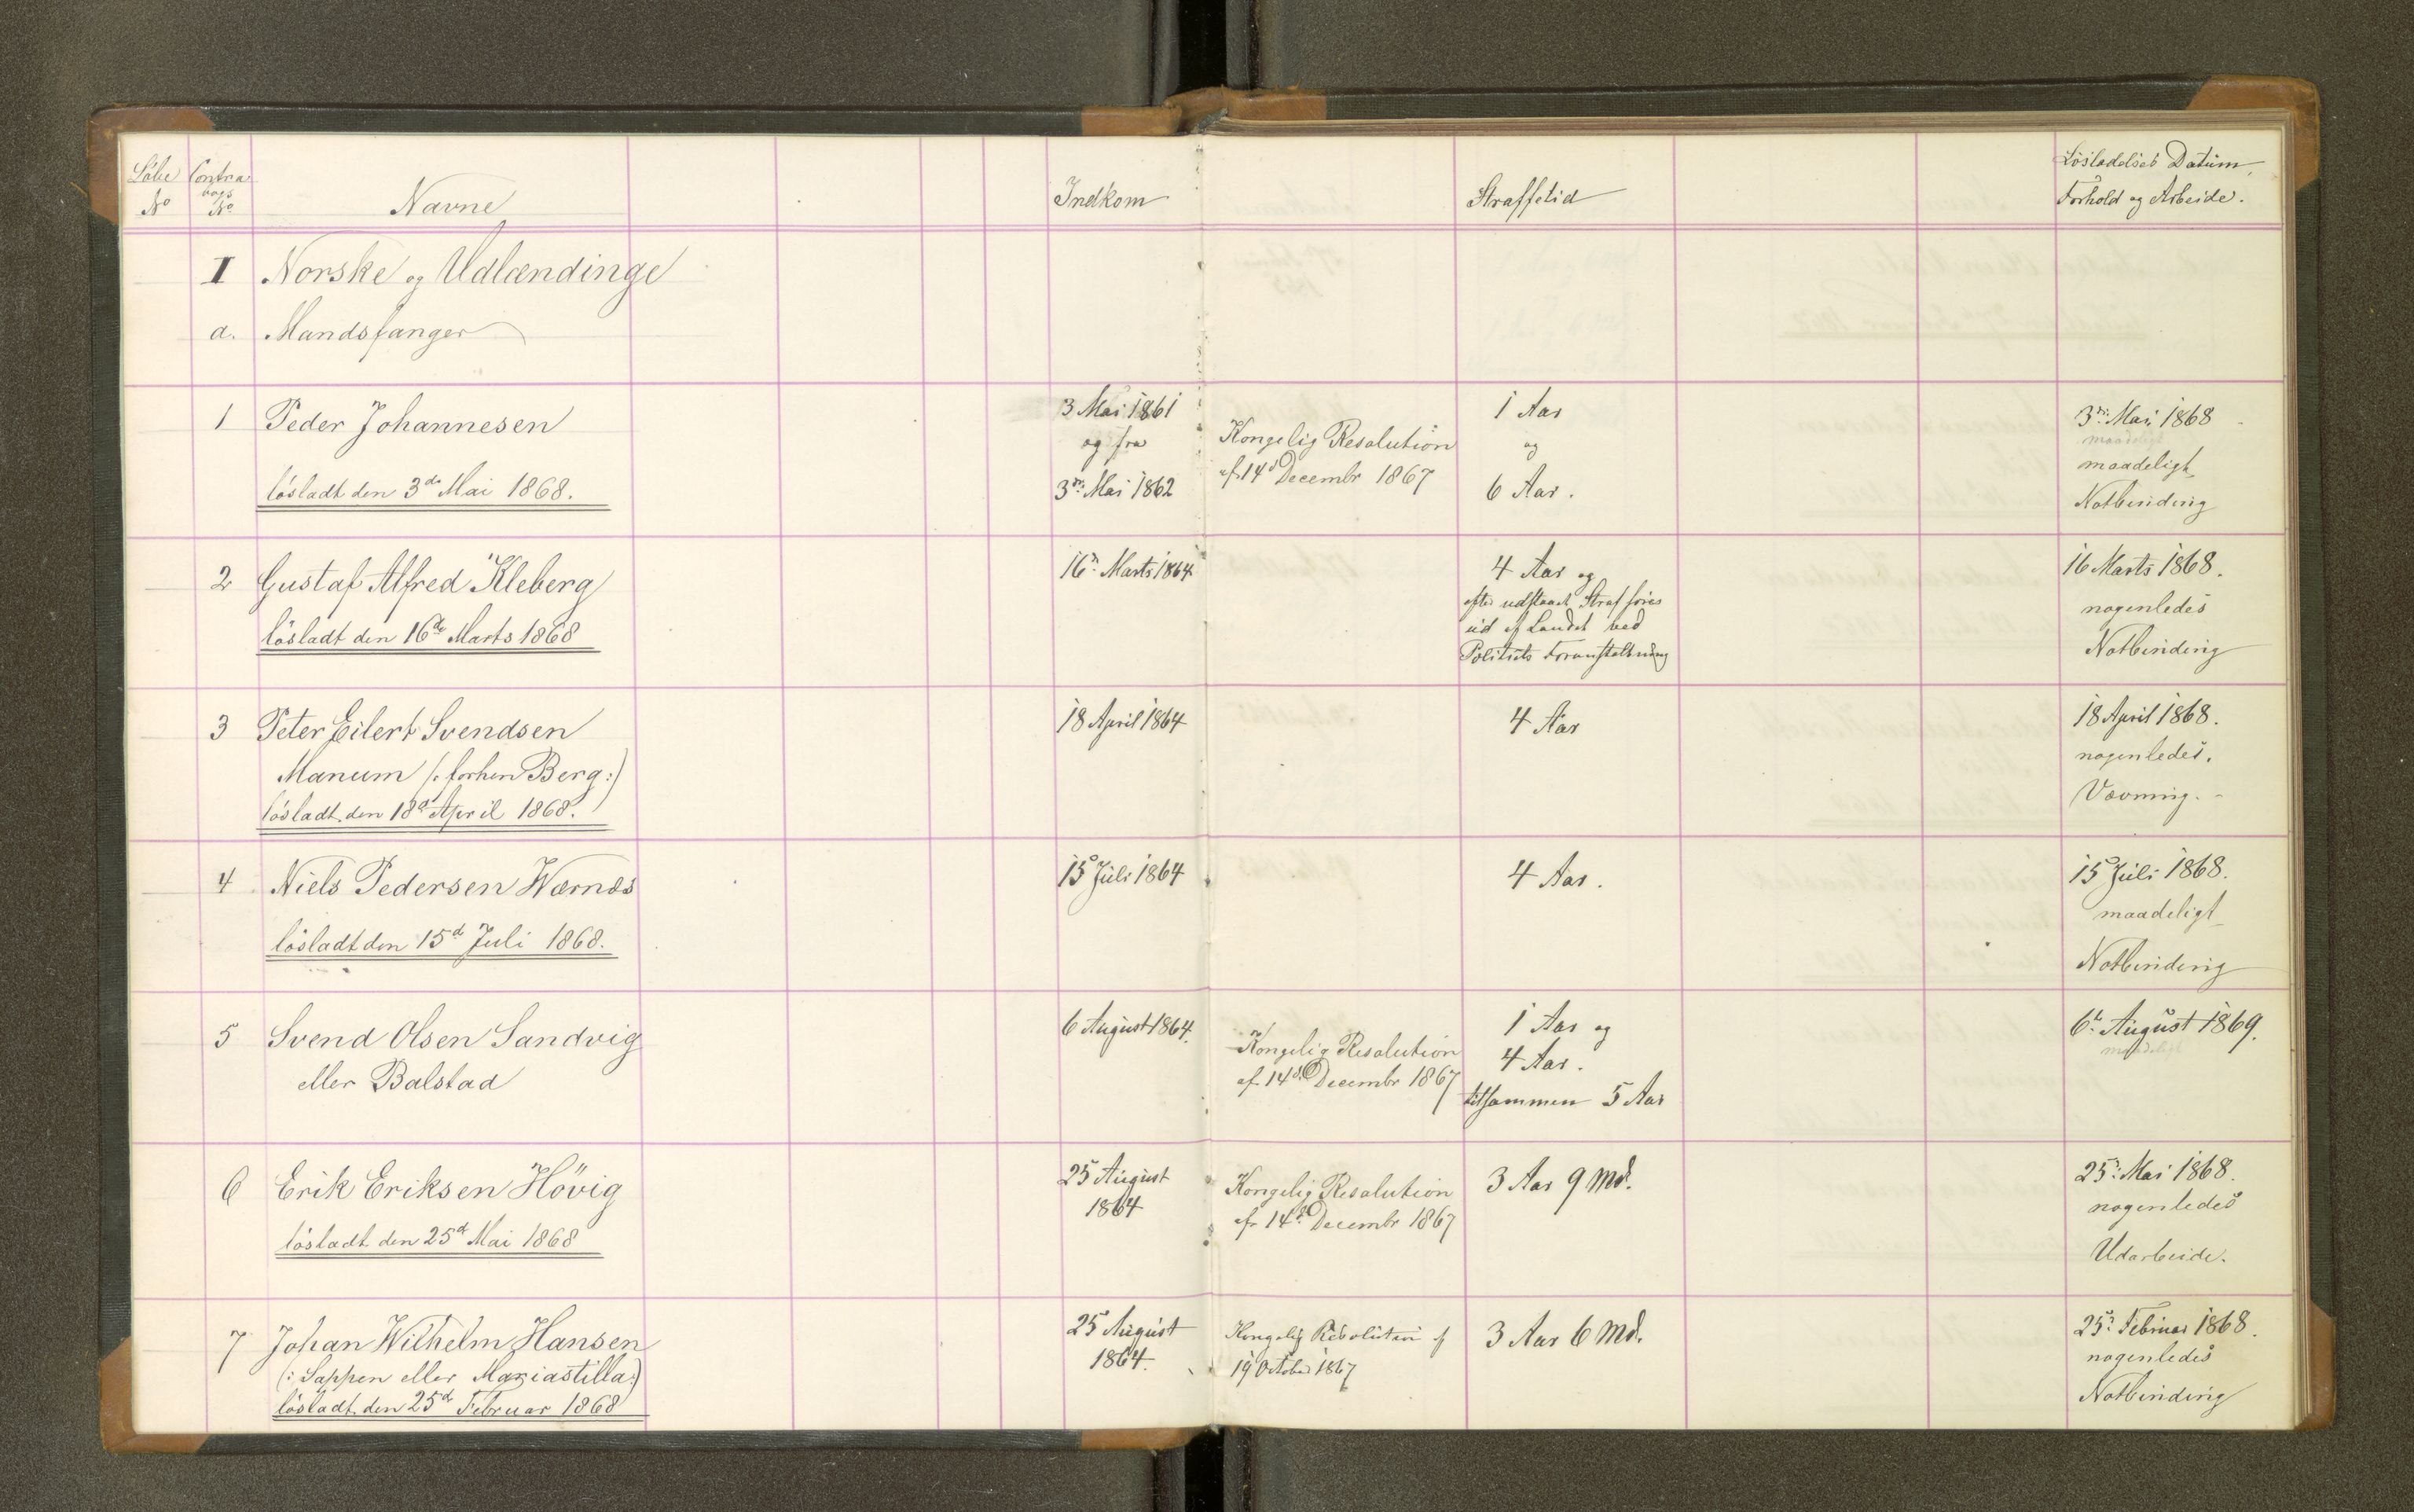 Løbe No
Contra bogs No
Navne
Indkom
Straffetid
Løsladelses Datum,
Forhold og Arbeide.
I Norske og Udlændinge
a. Mandsfanger
1 Peder Johannesen
løsladt den 3de Mai 1868.
3 Mai 1861
og fra
3die Mai 1862
Kongelig Resolution
af 14d Decembr 1867
1 Aar
og
6 Aar.
3die Mai 1868
maadeligt
maadeligt
Notbinding
2 Gustaf Alfred Kleberg
løsladt den 16de Marts 1868
16de Marts 1864
4 Aar og
efter udstaaet Straf føres
ud af Landet ved
Politiets Foranstaltning
16 Marts 1868.
nogenledes
Notbinding
3 Peter Eilert Svendsen
Manum (: forhen Berg:)
løsladt den 18d April 1868.
18 April 1864
4 Aar
18 April 1868.
nogenledes.
Vævning.
4 Niels Pedersen Wærnæs
løsladt den 15d Juli 1868.
15 Juli 1864
4 Aar.
15 Juli 1868.
maadeligt
Notbinding
5 Svend Olsen Sandvig
eller Balstad
6 August 1864.
Kongelig Resolution
af 14d Decembr 1867
1 Aar og
4 Aar.
tilsammen 5 Aar
6te August 1869.
maadeligt
6 Erik Eriksen Hövig
løsladt den 25d Mai 1868
25 August
1864
Kongelig Resolution
af 14d Decembr 1867
3 Aar 9 Md.
25de Mai 1868.
nogenledes
Udarbeide.
7 Johan Wilhelm Hansen
(: Sappen eller Mariastilla:)
løsladt den 25de Februar 1868
25 August
1864.
Kongelig Resolution af
19 October 1867
3 Aar 6 Md.
25de Februar 1868.
nogenledes
Notbinding